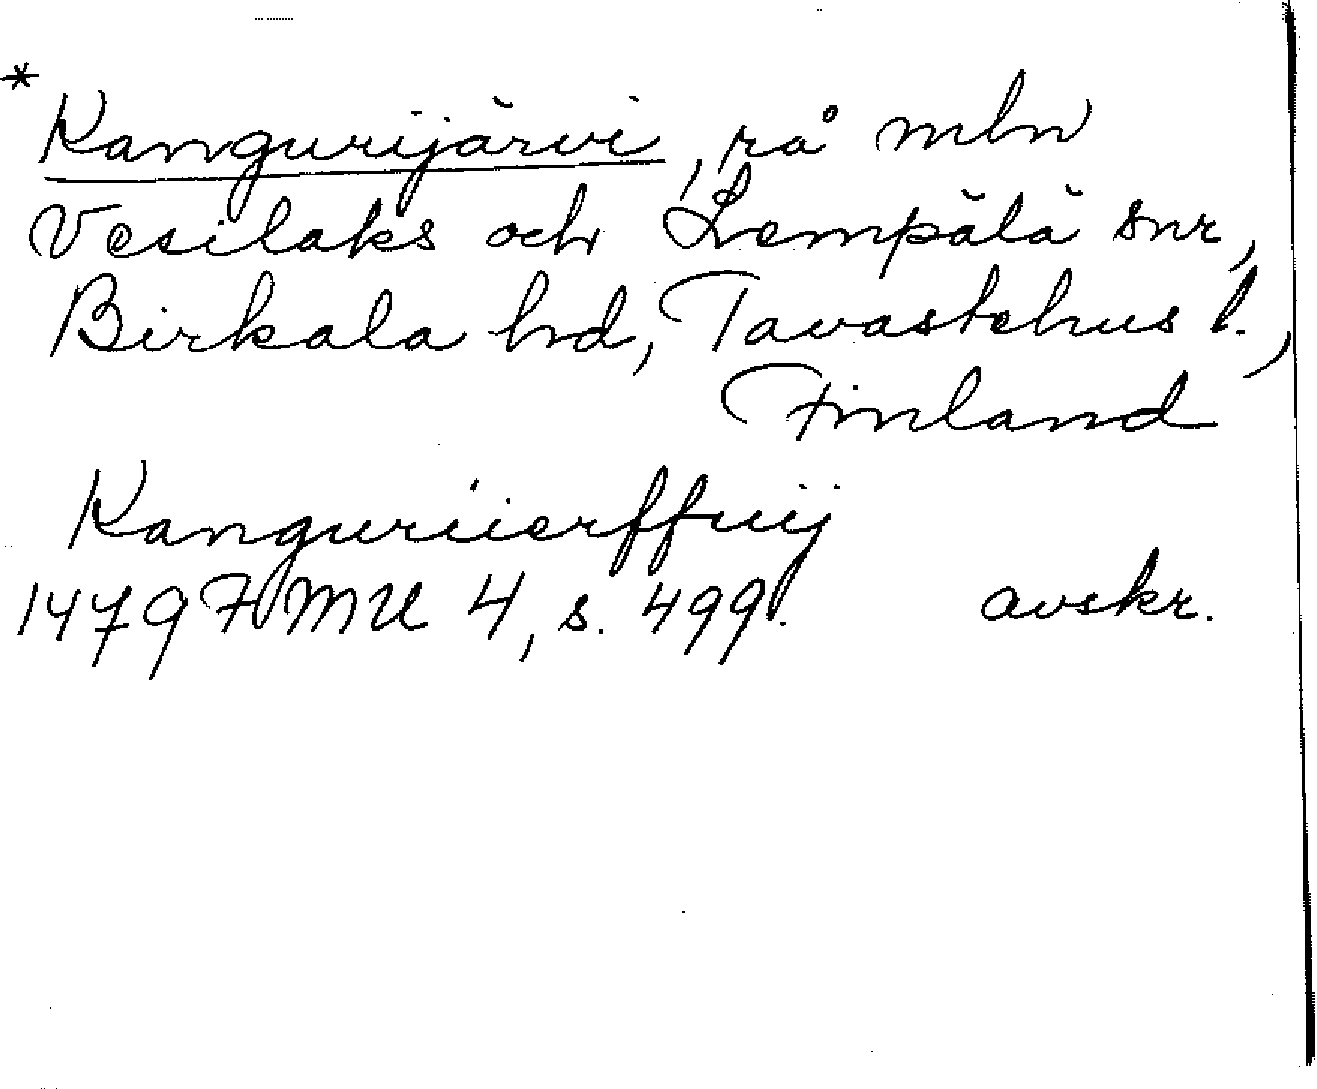 * Kangurijärvi, rå mln
Vesilaks och Lempälä snr,
Birkala hd, Tavastehus l.,
Finland
Kanguriierffuij
1479 FMU 4, s. 499. avskr.